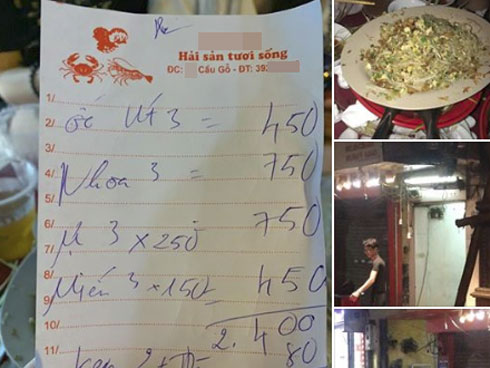 Hải sản tươi sống
ĐC: Cầu Gỗ - ĐT: 39
1/
2/ ốc 3 = 450
3/
4/ Nhoa 3 = 750
5/
6/ 3 x 250 750
7/
8/ Miến 3 x 150 = 450
9/
10/ 2.400
11/ 80